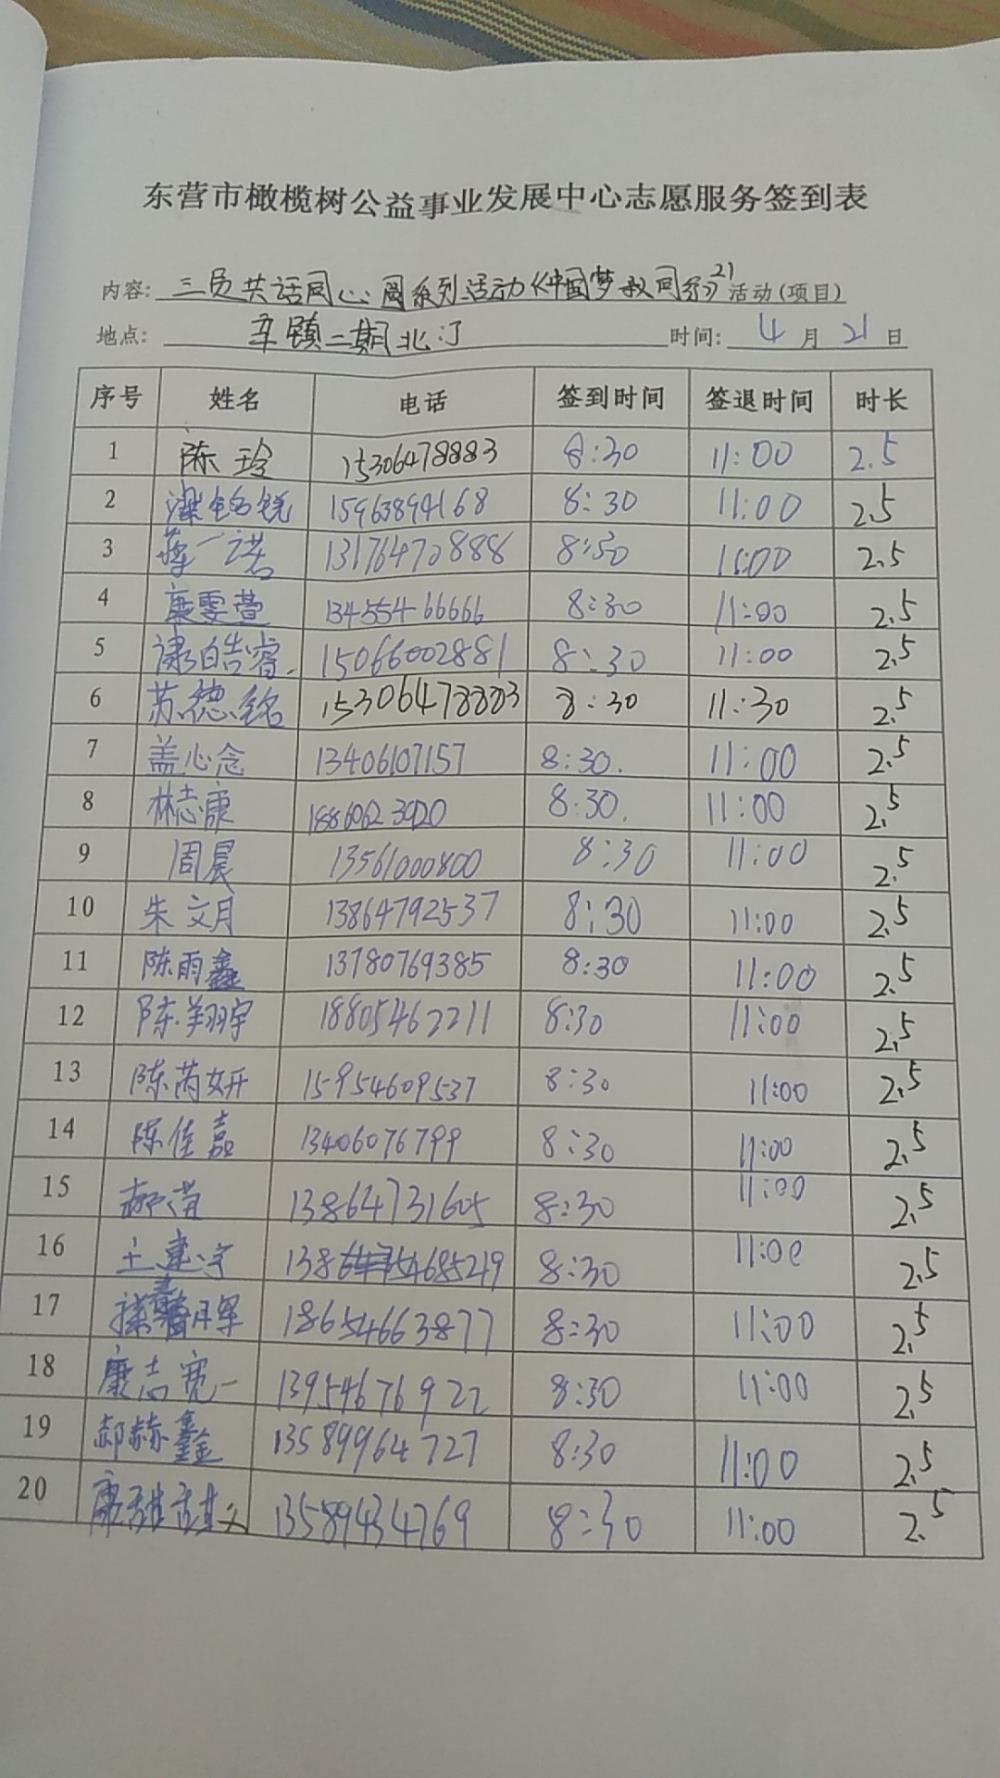 东营市橄榄树公益事业发展中心志愿服务签到表
内容: 三员共话同心圆系列活动《中国梦我同行》21 活动(项目)
地点: 辛镇二期北门 时间: 4 月 21 日
序号 姓名 电话 签到时间 签退时间 时长
1 陈玲 15306478883 8:30 11:00 2.5
2 15963894168 8:30 11:00 2.5
3 一诺 13176472888 8:30 11:00 2.5
4 康雯萱 13455466666 8:30 11:00 2.5
5 皓睿 15066002881 8:30 11:00 2.5
6 苏德铭 15306478883 8:30 11:30 2.5
7 盖心念 13406107157 8:30. 11:00 2.5
8 林志康 18860623020 8:30. 11:00 2.5
9 周晨 13561000800 8:30 11:00 2.5
10 朱文月 13864792537 8:30 11:00 2.5
11 陈雨鑫 13780769385 8:30 11:00 2.5
12 陈翔宇 18805462211 8:30 11:00 2.5
13 陈芮妍 15954609537 8:30 11:00 2.5
14 陈佳嘉 13406076799 8:30 11:00 2.5
15 13864731605 8:30 11:00 2.5
16 王建宇 13854685219 8:30 11:00 2.5
17 18654663877 8:30 11:00 2.5
18 康志宽 13954676922 8:30 11:00 2.5
19 郝赫鑫 13589964727 8:30 11:00 2.5
20 康甜甜 13589434769 8:30 11:00 2.5